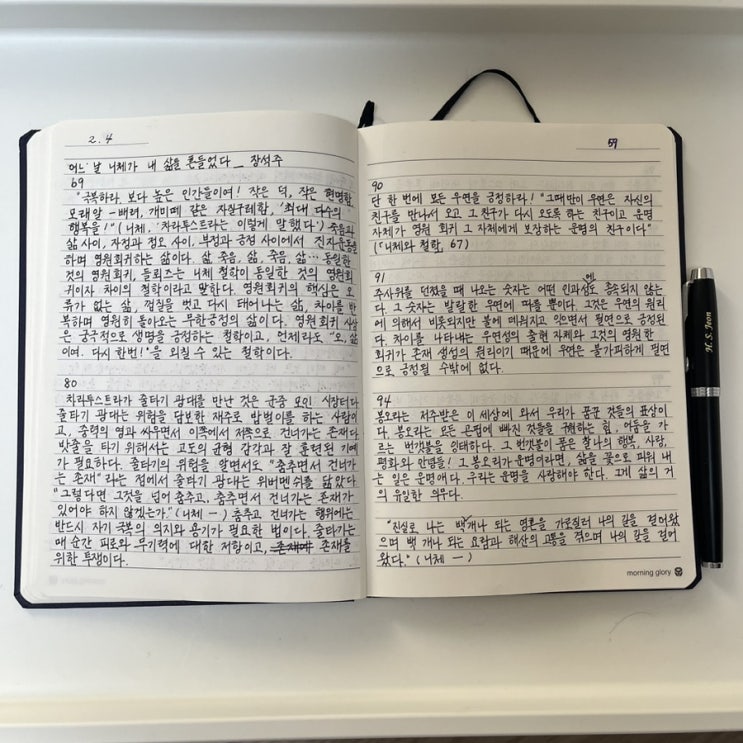 2. 4
어느 날 니체가 내 삶을 흔들었다 _ 장석주
69
"극복하라, 보다 높은 인간들이여! 작은 덕, 작은 현명함,
모래알 -배려, 개미떼 같은 자잘구레함, '최대 다수의
행복을!" (니체, 「차라투스트라는 이렇게 말했다」) 죽음과
삶 사이, 자정과 정오 사이, 부정과 긍정 사이에서 진자운동을
하며 영원회귀하는 삶이다. 삶, 죽음, 삶, 죽음, 삶… 동일한
것의 영원회귀, 들뢰즈는 니체 철학이 동일한 것의 영원회
귀이자 차이의 철학이라고 말한다. 영원회귀의 핵심은 오
류가 없는 삶, 껍질을 벗고 다시 태어나는 삶, 차이를 반
복하며 영원히 돌아오는 무한긍정의 삶이다. 영원회귀 사상
은 궁극적으로 생명을 긍정하는 철학이고, 언제라도 "오, 삶
이여. 다시 한번!"을 외칠 수 있는 철학이다.
80
차라투스트라가 줄타기 광대를 만난 것은 군중 모인 시장터다.
줄타기 광대는 위험을 담보한 재주로 밥벌이를 하는 사람이
고, 중력의 영과 싸우면서 이쪽에서 저쪽으로 건너가는 존재다.
밧줄을 타기 위해서는 고도의 균형 감각과 잘 훈련된 기예
가 필요하다. 줄타기의 위험을 알면서도 "춤추면서 건너가
는 존재"라는 점에서 줄타기 광대는 위버멘쉬를 닮았다.
"그렇다면 그것을 넘어 춤추고, 춤추면서 건너가는 존재가
있어야 하지 않겠는가." (니체 -) 춤추고 건너가는 행위에는
반드시 자기 극복의 의지와 용기가 필요한 법이다. 줄타기는
매 순간 피로와 무기력에 대한 저항이고, 존재를
위한 투쟁이다.
59
90
단 한 번에 모든 우연을 긍정하라! "그때만이 우연은 자신의
친구를 만나서 오고 그 친구가 다시 오도록 하는 친구이고 운명
자체가 영원 회귀 그 자체에게 보장하는 운명의 친구이다."
(「니체와 철학, 67)
91
주사위를 던졌을 때 나오는 숫자는 어떤 인과성에도 종속되지 않는
다. 그 숫자는 발랄한 우연에 따를 뿐이다. 그것은 우연의 원리
에 의해서 비롯되지만 불에 데워지고 익으면서 필연으로 긍정된
다. 차이를 나타내는 우연성의 출현 자체와 그것의 영원한
회귀가 존재 생성의 원리이기 때문에 우연은 불가피하게 필연
으로 긍정될 수밖에 없다.
94
봉오리는 저주받은 이 세상에 와서 우리가 꿈꾼 것들의 표상이
다. 봉오리는 모든 곤핍에 빠진 것들을 구해하는 힘, 어둠을 가
르는 번갯불을 잉태하다. 그 번갯불이 품은 찰나의 행복, 사랑,
평화와 안녕들! 그 봉오리가 운명이라면, 삶을 꽃으로 피워 내
는 일은 운명애다. 우리는 운명을 사랑해야 한다. 그게 삶의 거
의 유일한 의무다.
"진실로 나는 백 개나 되는 영혼을 가로질러 나의 길을 걸어왔
으며 백 개나 되는 요람과 해산의 고통을 겪으며 나의 길을 걸어
왔다." (니체 -)
morning glory
H. S. Jeon